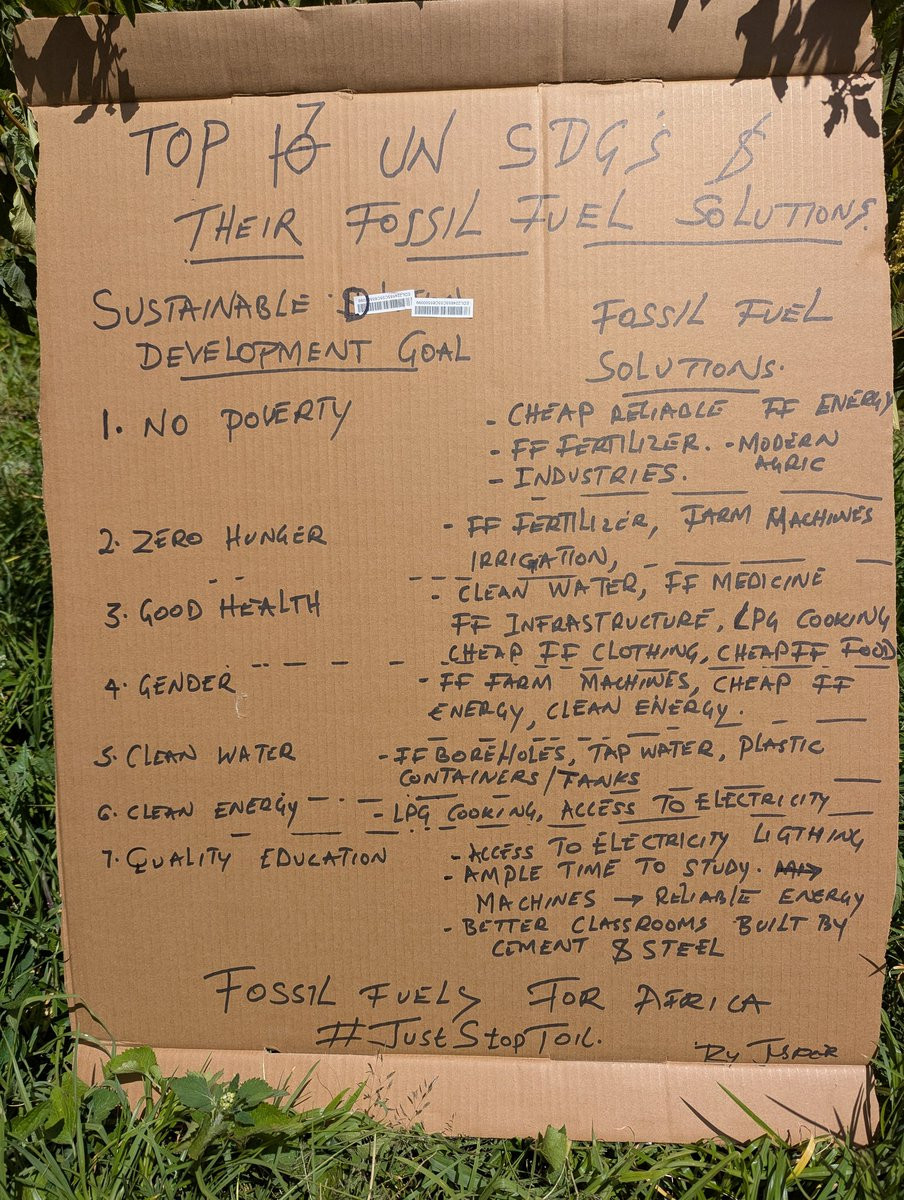 TOP 7 UN SDG's &
THEIR FOSSIL FUEL SOLUTIONS.
SUSTAINABLE D
DEVELOPMENT GOAL
FOSSIL FUEL
SOLUTIONS.
1. NO POVERTY
- CHEAP RELIABLE FF ENERGY
- FF FERTILIZER. - MODERN AGRIC
- INDUSTRIES.
2. ZERO HUNGER
- FF FERTILIZER, FARM MACHINES
IRRIGATION,
3. GOOD HEALTH
- CLEAN WATER, FF MEDICINE
FF INFRASTRUCTURE, LPG COOKING
CHEAP FF CLOTHING, CHEAP FF FOOD
4. GENDER
- FF FARM MACHINES, CHEAP FF
ENERGY, CLEAN ENERGY.
5. CLEAN WATER
- FF BOREHOLES, TAP WATER, PLASTIC
CONTAINERS/TANKS
6. CLEAN ENERGY
- LPG COOKING, ACCESS TO ELECTRICITY
7. QUALITY EDUCATION
- ACCESS TO ELECTRICITY LIGTHING
- AMPLE TIME TO STUDY.
MACHINES → RELIABLE ENERGY
- BETTER CLASSROOMS BUILT BY
CEMENT & STEEL
FOSSIL FUELS FOR AFRICA
#JustStopToil.
By Jusper